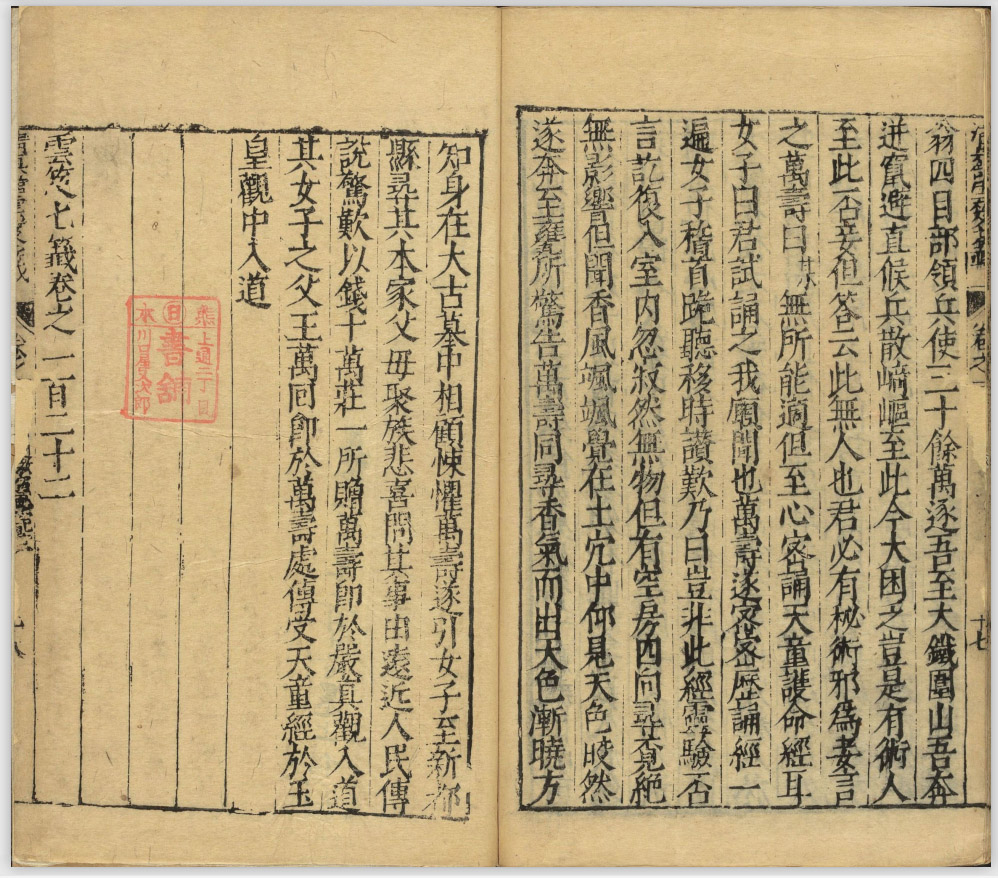 翁四目部領兵使三十餘萬逐吾至大鐵圍山吾奔
迸竄避直候兵散崎嶇至此今大困之豈是有術人
至此否妾但答云此無人也君必有秘術邪爲妾言
之萬壽曰某無所能適但至心密誦天童護命經耳
女子曰君試誦之我願聞也萬壽遂密密歷誦經一
遍女子稽首跪聽移時讃歎乃曰豈非此經靈驗否
言訖復入室内忽寂然無物但有空房四向尋覓絶
無影響但聞香風颯颯覺在土穴中仰見天色歧然
遂奔至舊所驚告萬壽同尋香氣而出天色漸曉方
知身在大古墓中相顧悚懼萬壽遂引女子至新都
縣尋其本家父母聚族悲喜問其事由遠近人民傳
說驚歎以錢十萬莊一所贈萬壽即於嚴真觀入道
其女子之父王萬回即於萬壽處傳受天童經於玉
皇觀中入道
雲笈七籤卷之一百二十二
書舖